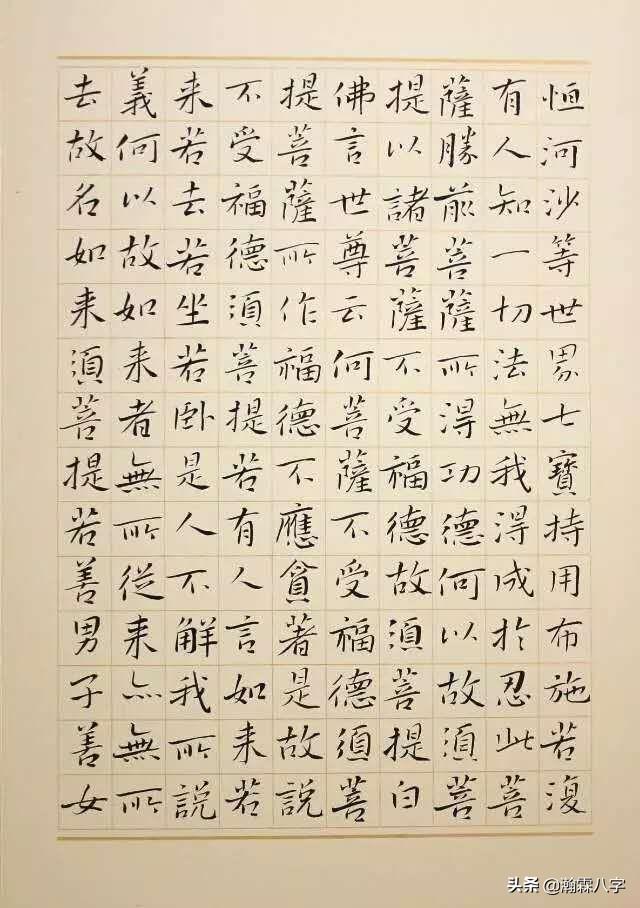 恒河沙等世界七寶持用布施若復
有人知一切法無我得成於忍此菩
薩勝前菩薩所得功德何以故須菩
提以諸菩薩不受福德故須菩提白
佛言世尊云何菩薩不受福德須菩
提菩薩所作福德不應貪著是故說
不受福德須菩提若有人言如来若
来若去若坐若卧是人不解我所說
義何以故如来者無所從来亦無所
去故名如来須菩提若善男子善女
头条 @瀚霖八字